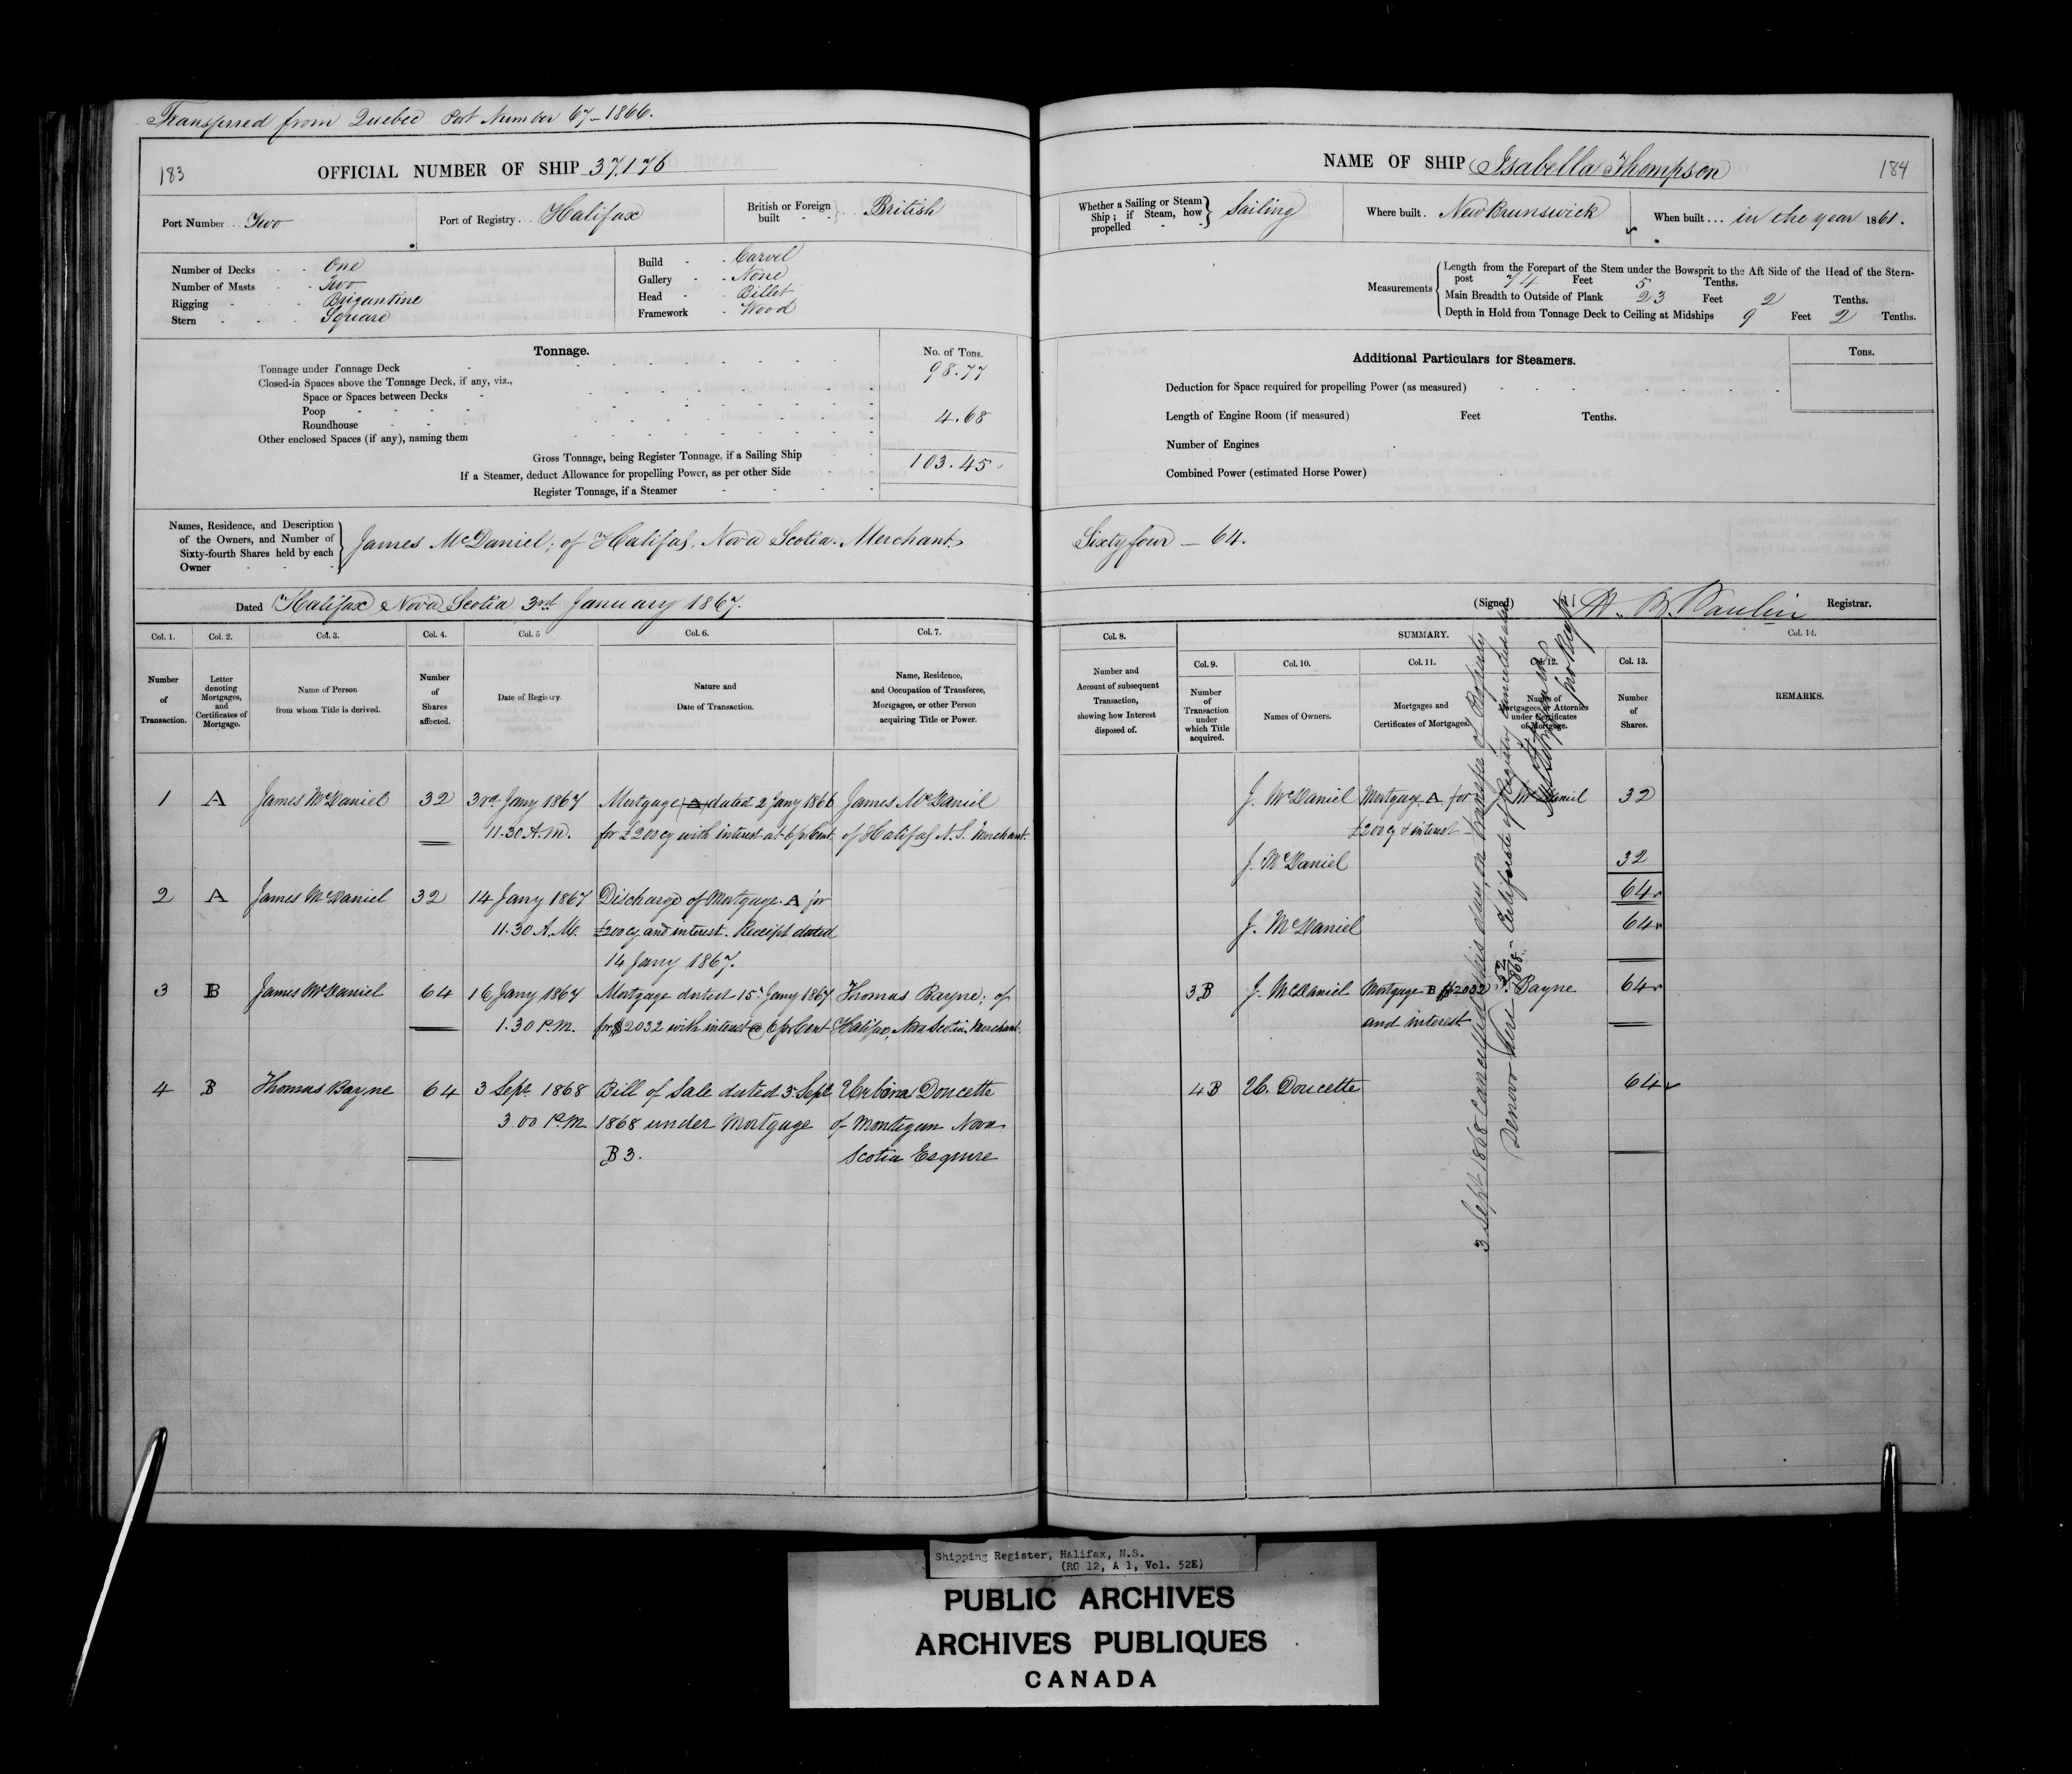 Transferred from Quebec Port Number 67-1866.
183
OFFICIAL NUMBER OF SHIP 37,176
Port Number ... Two
Port of Registry ... Halifax
British or Foreign built - - British
Number of Decks - - One
Number of Masts - - Two
Rigging - - - Brigantine
Stern - - - Square
Build - - Carvel
Gallery - - None
Head - - Billet
Framework - Wood
Tonnage.
No. of Tons.
Tonnage under Tonnage Deck 98.77
Closed-in Spaces above the Tonnage Deck, if any, viz.,
Space or Spaces between Decks
Poop
Roundhouse 4.68
Other enclosed Spaces (if any), naming them
Gross Tonnage, being Register Tonnage, if a Sailing Ship 103.45
If a Steamer, deduct Allowance for propelling Power, as per other Side
Register Tonnage, if a Steamer
Names, Residence, and Description
of the Owners, and Number of
Sixty-fourth Shares held by each
Owner
James McDaniel, of Halifax, Nova Scotia. Merchant.
Dated Halifax Nova Scotia 3rd January 1867.
Col. 1. Col. 2. Col. 3. Col. 4. Col. 5 Col. 6. Col. 7.
Number of Transaction.
Letter denoting Mortgages, and Certificates of Mortgage.
Name of Person from whom Title is derived.
Number of Shares affected.
Date of Registry.
Nature and Date of Transaction.
Name, Residence, and Occupation of Transferee, Mortgagee, or other Person acquiring Title or Power.
1 A James McDaniel 32 3rd Jany 1867 Mortgage (A) dated 2 Jany 1866 James McDaniel
11.30 A.M. for £200 cy with interest at 6 pr Cent of Halifax N.S. Merchant.
2 A James McDaniel 32 14 Jany 1867 Discharge of Mortgage A for
11.30 A.M. £200 cy and interest. Receipt dated
14 Jany 1867.
3 B James McDaniel 64 16 Jany 1867 Mortgage dated 15 Jany 1867 Thomas Bayne; of
1.30 P.M. for $2032 with interest @ 6 pr Cent Halifax, Nova Scotia, Merchant.
4 B Thomas Bayne 64 3 Sept 1868 Bill of Sale dated 3 Sept Urbina Doucette
3.00 P.M. 1868 under Mortgage of Montegan Nova
B 3. Scotia Esquire
NAME OF SHIP Isabella Thompson 184
Whether a Sailing or Steam Ship; if Steam, how propelled - - Sailing
Where built. New Brunswick
When built ... in the year 1861.
Measurements
Length from the Forepart of the Stem under the Bowsprit to the Aft Side of the Head of the Stern-
post 74 Feet 5 Tenths.
Main Breadth to Outside of Plank 23 Feet 2 Tenths.
Depth in Hold from Tonnage Deck to Ceiling at Midships 9 Feet 2 Tenths.
Additional Particulars for Steamers.
Tons.
Deduction for Space required for propelling Power (as measured)
Length of Engine Room (if measured) Feet Tenths.
Number of Engines
Combined Power (estimated Horse Power)
Sixty four — 64.
(Signed) Registrar.
Col. 8. SUMMARY. Col. 14.
Col. 9. Col. 10. Col. 11. Col. 12. Col. 13.
Number and Account of subsequent Transaction, showing how Interest disposed of.
Number of Transaction under which Title acquired.
Names of Owners.
Mortgages and Certificates of Mortgages.
Names of Mortgagees or Attornies under Certificates of Mortgage.
Number of Shares.
REMARKS.
J. McDaniel Mortgage A for J. McDaniel 32
£200 cy & interest
J. McDaniel 32
64
J. McDaniel 64
3B J. McDaniel Mortgage B $2032 T. Bayne 64
and interest
4B U. Doucette 64
3 Sept 1868 Cancelled this day on transfer of Property
Denovo here 52/1868. Certificate of Registry cancelled also
Shipping Register, Halifax, N.S.
(RG 12, A 1, Vol. 52E)
PUBLIC ARCHIVES
ARCHIVES PUBLIQUES
CANADA